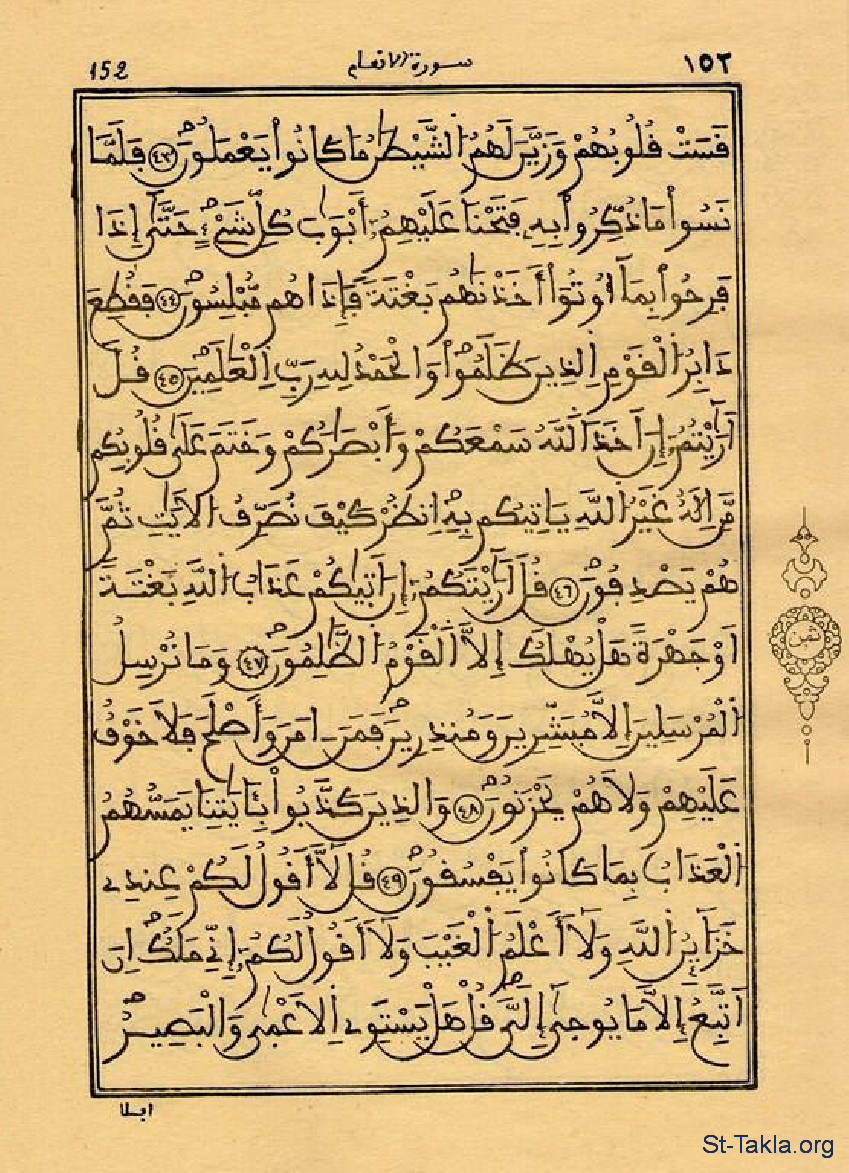 152 سورة الانعام ١٥٢
قَسَتْ قُلُوبُهُمْ وَزَيَّنَ لَهُمُ الشَّيْطَٰنُ مَا كَانُواْ يَعْمَلُونَ ٤٣ فَلَمَّا
نَسُواْ مَا ذُكِّرُواْ بِهِۦ فَتَحْنَا عَلَيْهِمُۥٓ أَبْوَٰبَ كُلِّ شَےْءٍ حَتَّىٰٓ إِذَا
فَرِحُواْ بِمَآ أُوتُوٓاْ أَخَذْنَٰهُم بَغْتَةً فَإِذَا هُم مُّبْلِسُونَ ٤٤ فَقُطِعَ
دَابِرُ الْقَوْمِ الذِينَ ظَلَمُواْ وَالْحَمْدُ لِلهِ رَبِّ الْعَٰلَمِينَ ٤٥ قُلَ
اَرَٰيْتُمُۥٓ إِنَ اَخَذَ اَللَّهُ سَمْعَكُمْ وَأَبْصَٰرَكُمْ وَخَتَمَ عَلَىٰ قُلُوبِكُم
مَّنِ اِلَٰهٌ غَيْرُ اللَّهِ يَاتِيكُم بِهِ اِنظُرْ كَيْفَ نُصَرِّفُ الاَيَٰتِ ثُمَّ
هُمْ يَصْدِفُونَ ٤٦ قُلَ اَرَٰيْتَكُمُۥٓ إِنَ اَتَيٰكُمْ عَذَابُ اللَّهِ بَغْتَةً
اَوْ جَهْرَةً هَلْ يُهْلَكُ إِلاَّ اَلْقَوْمُ الظَّٰلِمُونَ ٤٧ وَمَا نُرْسِلُ
الْمُرْسَلِينَ إِلاَّ مُبَشِّرِينَ وَمُنذِرِينَ فَمَنَ اٰمَنَ وَأَصْلَحَ فَلاَ خَوْفٌ
عَلَيْهِمْ وَلاَ هُمْ يَحْزَنُونَ ٤٨ وَالذِينَ كَذَّبُواْ بِـَٔايَٰتِنَا يَمَسُّهُمُ
الْعَذَابُ بِمَا كَانُواْ يَفْسُقُونَ ٤٩ قُل لَّآ أَقُولُ لَكُمْ عِندِے
خَزَآئِنُ اللَّهِ وَلَآ أَعْلَمُ الْغَيْبَ وَلَآ أَقُولُ لَكُمُۥٓ إِنِّے مَلَكٌ اِنَ
اَتَّبِعُ إِلاَّ مَا يُوحَىٰٓ إِلَيَّ قُلْ هَلْ يَسْتَوِے اِلاَعْمَىٰ وَالْبَصِيرُ
ثمن
افلا
St-Takla.org